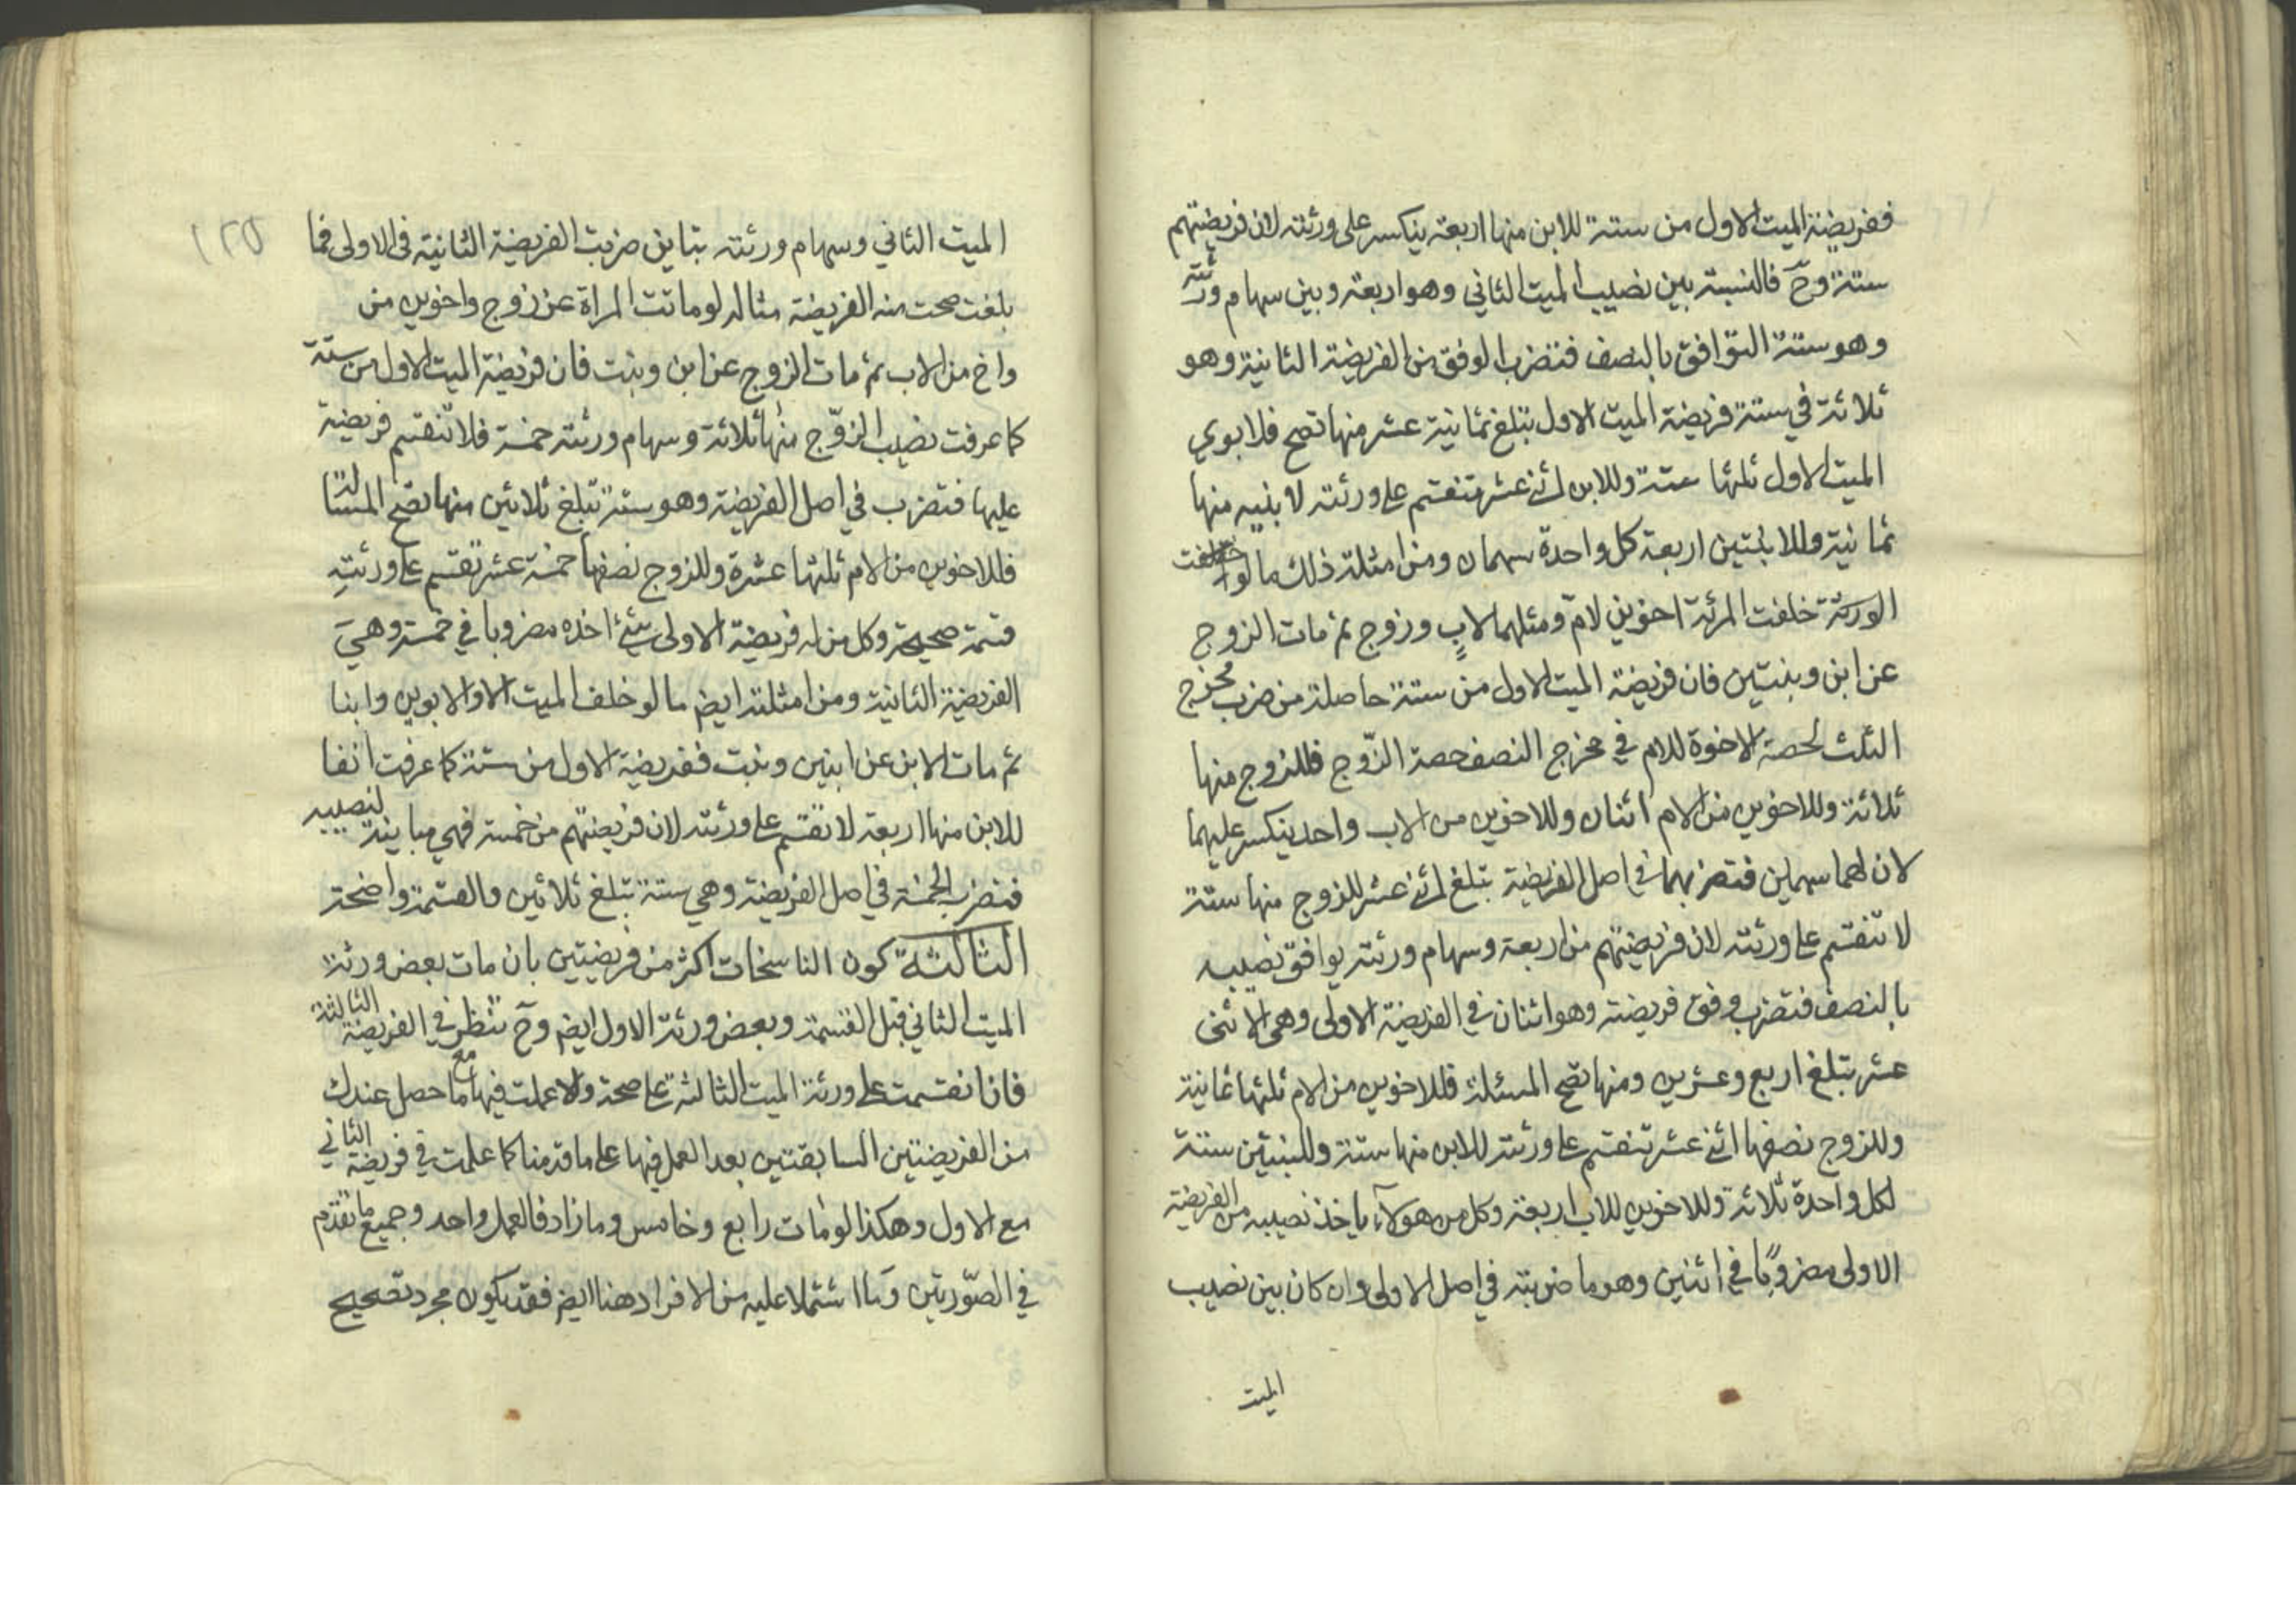 ففريضة الميت الاول من ستة للابن منها اربعة ينكسر على ورثته لان فريضتهم
ستة وح فالنسبة بين نصيب الميت الثاني وهو اربعة وبين سهام ورثته
وهو ستة التوافق بالنصف فتضرب الوفق من الفريضة الثانية وهو
ثلاثة في ستة فريضة الميت الاول تبلغ ثمانية عشر منها تصح فلابوي
الميت الاول ثلثها ستة وللابن اثنى عشر تنقسم على ورثته لابنيه منها
ثمانية وللابنتين اربعة كل واحدة سهمان ومن امثلة ذلك ما لو
الورثة خلفت المرئة اخوين لام ومثلهما لاب وزوج ثم مات الزوج
عن ابن وبنتين فان فريضة الميت الاول من ستة حاصلة من ضرب مخرج
الثلث لحصة الاخوة للام في مخرج النصف حصة الزّوج فللزوج منها
ثلاثة وللاخوين من الام اثنان وللاخوين من الاب واحد ينكسر عليهما
لان لهما سهمين فتضربهما في اصل الفريضة تبلغ اثنى عشر للزوج منها ستة
لا تنقسم على ورثته لان فريضتهم من اربعة وسهام ورثته يوافق نصيبه
بالنصف فتضرب وفق فريضته وهو اثنان في الفريضة الاولى وهي الاثنى
عشر تبلغ اربع وعشرين ومنها تصح المسئلة فللاخوين من الام ثلثها ثمانية
وللزوج نصفها اثنى عشر تنقسم على ورثته للابن منها ستة وللبنتين ستة
لكل واحدة ثلاثة وللاخوين للاب اربعة وكل من هولآء ياخذ نصيبه من الفريضة
الاولى مضروبًا في اثنين وهو ما ضربته في اصل الاولى وان كان بين نصيب
الميت
١٢٥
الميت الثاني وسهام ورثته تباين ضربت الفريضة الثانية في الاولى فما
بلغت صحت منه الفريضة مثاله لو ماتت المراة عن زوج واخوين من
واخ من الاب ثم مات الزوج عن ابن وبنت فان فريضة الميت الاول من ستة
كما عرفت نصيب الزوّج منها ثلاثة وسهام ورثته خمسة فلا تنقسم فريضية
عليها فتضرب في اصل الفريضة وهو ستة تبلغ ثلاثين منها تصح المسئالة
فللاخوين من الام ثلثها عشرة وللزوج نصفها خمسة عشر تقسم على ورثته
قسمة صحيحة وكل من له فريضة الاولى شئ اخذه مضروبا في خمسة وهي
الفريضة الثانية ومن امثلته ايضم ما لو خلف الميت الاوالابوين وابنا
ثم مات الابن عن ابنين وبنت ففريضة الاول من ستة كما عرفت انفا
للابن منها اربعة لا تقسم على ورثته لان فريضتهم من خمسة فهي مباينة لنصيبه
فتضرب الخمسة في اصل الفريضة وهي ستة تبلغ ثلاثين والقسمة واضحة
الثالثة كون الناسخات اكثر من فريضتين بان مات بعض ورثة
الميت الثاني قبل القسمة وبعض ورثة الاول ايضم وح تنظر في الفريضة الثالثة
فان انقسمت على ورثة الميت الثالثة على صحة والا عملت فيها مع ما حصل عندك
من الفريضتين السابقتين بعد العمل فيها على ما قدمنا كما علمت في فريضة الثاني
مع الاول وهكذا لو مات رابع وخامس وما زاد فالعمل واحد وجميع ما تقدم
في الصّورتين وما اشتملا عليه من الافراد هنا ايضم فقد يكون مجرد تصحيح